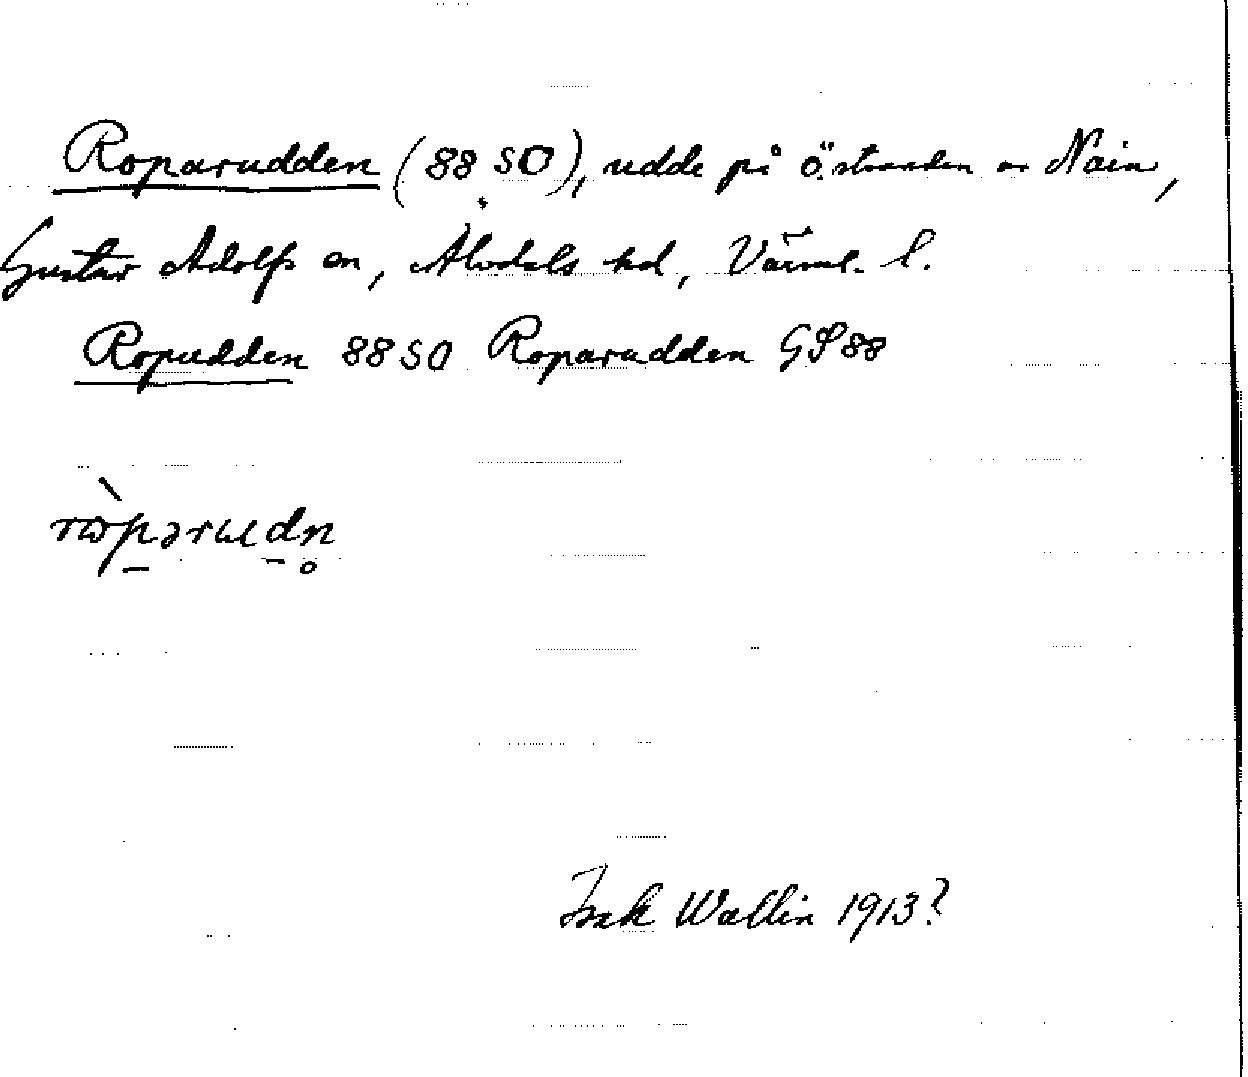 Roparudden (88 SO), udde på Ö. stranden av Nain,
Gustav Adolfs sn, Älvdals hd, Värml. l.
Ropudden 88 SO Roparudden GS 88
ròpərudn̥
Isak Wallin 1913?